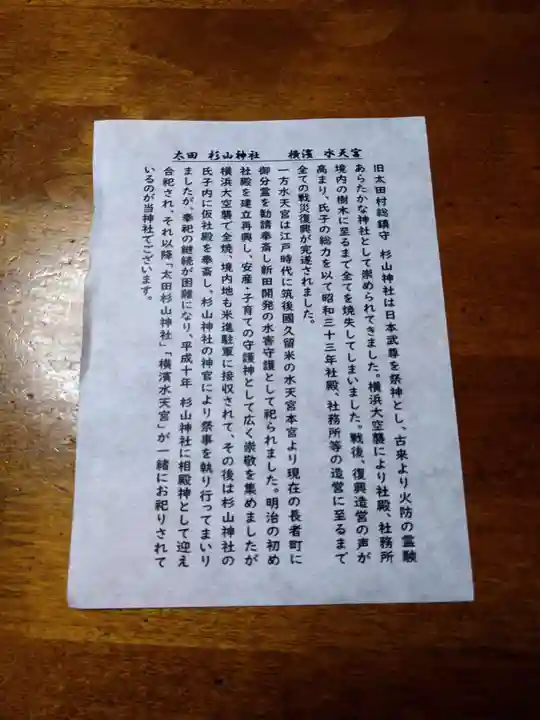 太田 杉山神社 横濱 水天宮
旧太田村総鎮守 杉山神社は日本武尊を祭神とし、古来より火防の霊験
あらたかな神社として崇められてきました。横浜大空襲により社殿、社務所
境内の樹木に至るまで全てを焼失してしまいました。戦後、復興造営の声が
高まり、氏子の総力を以て昭和三十三年社殿、社務所等の造営に至るまで
全ての戦災復興が完遂されました。
一方水天宮は江戸時代に筑後國久留米の水天宮本宮より現在の長者町に
御分霊を勧請奉斎し新田開発の水害守護として祀られました。明治の初め
社殿を建立再興し、安産・子育ての守護神として広く崇敬を集めましたが
横浜大空襲で全焼、境内地も米進駐軍に接収されて、その後は杉山神社の
氏子内に仮社殿を奉斎し、杉山神社の神官により祭事を執り行ってまいり
ましたが、奉祀の継続が困難になり、平成十年 杉山神社に相殿神として迎え
合祀され、それ以降「太田杉山神社」「横濱水天宮」が一緒にお祀りされて
いるのが当神社でございます。